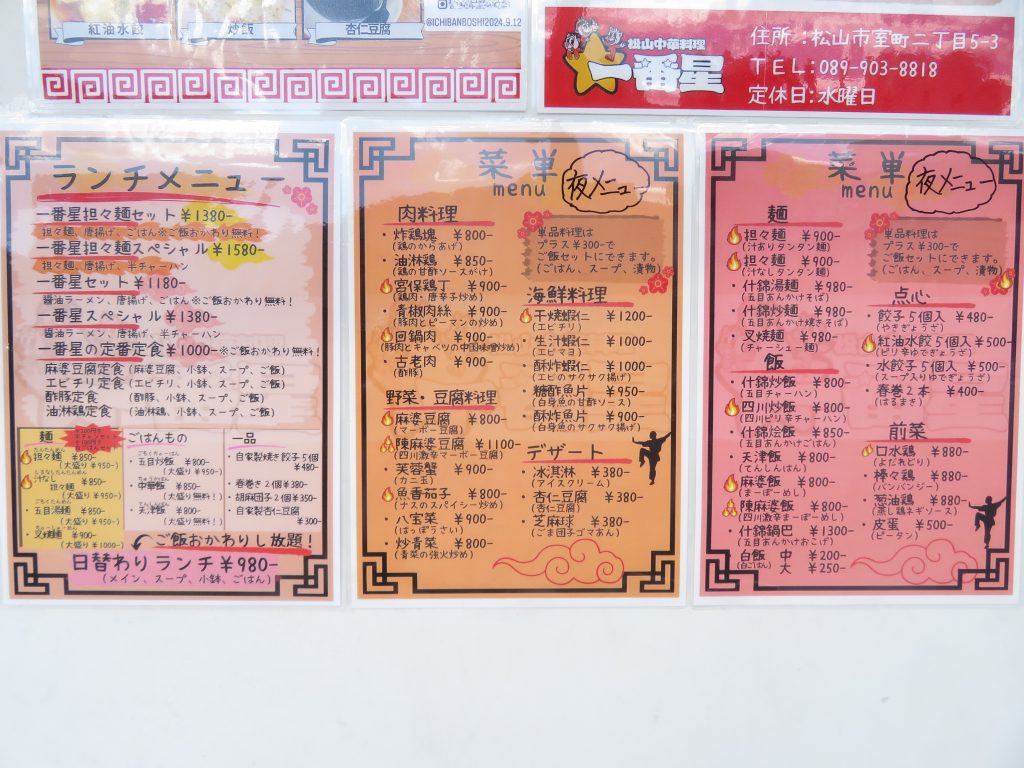 紅油水餃
炒飯
杏仁豆腐
@ICHIBANBOSHI2024.9.12
松山中華料理
一番星
住所：松山市室町二丁目5-3
TEL:089-903-8818
定休日:水曜日
ランチメニュー
一番星担々麺セット ¥1380-
担々麺、唐揚げ、ごはん※ご飯おかわり無料！
一番星担々麺スペシャル ¥1580-
担々麺、唐揚げ、半チャーハン
一番星セット ¥1180-
醤油ラーメン、唐揚げ、ごはん※ご飯おかわり無料！
一番星スペシャル ¥1380-
醤油ラーメン、唐揚げ、半チャーハン
一番星の定番定食 ¥1000-※ご飯おかわり無料！
麻婆豆腐定食(麻婆豆腐、小鉢、スープ、ご飯)
エビチリ定食(エビチリ、小鉢、スープ、ご飯)
酢豚定食 (酢豚、小鉢、スープ、ご飯)
油淋鶏定食 (油淋鶏、小鉢、スープ、ご飯)
麺
たんたんめん
担々麺 ¥850-
(大盛り¥950-)
しるなしたんたんめん
汁なし
担々麺 ¥850-
(大盛り¥950-)
ごもくたんめん
・五目湯麺 ¥850-
(大盛り¥950-)
ちゃーしゅーめん
・叉焼麺 ¥900-
(大盛り¥1000-)
ごはんもの
ごもくちゃーはん
・五目炒飯 ¥850-
(大盛り¥950-)
ちゅうかはん
・中華飯 ¥800-
(大盛り無料！)
てんしんはん
・天津飯 ¥800-
(大盛り無料！)
一品
・自家製焼き餃子5個
¥480-
・春巻き2個¥380-
・胡麻団子2個¥350-
・自家製杏仁豆腐
¥300-
ご飯おかわりし放題！
日替わりランチ ¥980-
(メイン、スープ、小鉢、ごはん)
菜単
menu
夜メニュー
単品料理は
プラス¥300-で
ご飯セットにできます。
(ごはん、スープ、漬物)
肉料理
・炸鶏塊 ¥800-
(鶏のからあげ)
・油淋鶏 ¥850-
(鶏の甘酢ソースがけ)
宮保鶏丁 ¥900-
(鶏肉・唐辛子炒め)
・青椒肉絲 ¥900-
(豚肉とピーマンの炒め)
回鍋肉 ¥900-
(豚肉とキャベツの中国味噌炒め)
・古老肉 ¥900-
(酢豚)
野菜・豆腐料理
麻婆豆腐 ¥800-
(マーボー豆腐)
陳麻婆豆腐 ¥1100-
(四川激辛マーボー豆腐)
・芙蓉蟹 ¥900-
(カニ玉)
魚香茄子 ¥800-
(ナスのスパイシー炒め)
・八宝菜 ¥900-
(はっぽうさい)
・炒青菜 ¥800-
(青菜の強火炒め)
海鮮料理
干焼蝦仁 ¥1200-
(エビチリ)
・生汁蝦仁 ¥1000-
(エビマヨ)
・酥炸蝦仁 ¥1000-
(エビのサクサク揚げ)
・糖酢魚片 ¥950-
(白身魚の甘酢ソース)
・酥炸魚片 ¥900-
(白身魚のサクサク揚げ)
デザート
・冰淇淋 ¥380-
(アイスクリーム)
・杏仁豆腐 ¥380-
・芝麻球 ¥380-
(ごま団子ゴマあん)
菜単
menu
夜メニュー
単品料理は
プラス¥300-で
ご飯セットにできます。
(ごはん、スープ、漬物)
麺
担々麺 ¥900-
(汁ありタンタン麺)
担々麺 ¥900-
(汁なしタンタン麺)
・什錦湯麺 ¥980-
(五目あんかけそば)
・什錦炒麺 ¥980-
(五目あんかけ焼きそば)
・叉焼麺 ¥980-
(チャーシュー麺)
飯
・什錦炒飯 ¥800-
(五目チャーハン)
四川炒飯 ¥800-
(四川ピリ辛チャーハン)
・什錦烩飯 ¥850-
(五目あんかけごはん)
・天津飯 ¥800-
(てんしんはん)
麻婆飯 ¥800-
(まーぼーめし)
陳麻婆飯 ¥850-
(四川激辛まーぼーめし)
・什錦鍋巴 ¥1300-
(五目あんかけおこげ)
・白飯 中 ¥200-
(白ごはん) 大 ¥250-
点心
・餃子5個入 ¥480-
(やきぎょうざ)
紅油水餃5個入 ¥500-
(ピリ辛ゆでぎょうざ)
・水餃子5個入 ¥500-
(スープ入りゆでぎょうざ)
・春巻2本 ¥400-
(はるまき)
前菜
口水鶏 ¥880-
(よだれどり)
・棒々鶏 ¥880-
(バンバンジー)
・葱油鶏 ¥880-
(蒸し鶏ネギソース)
・皮蛋 ¥500-
(ピータン)